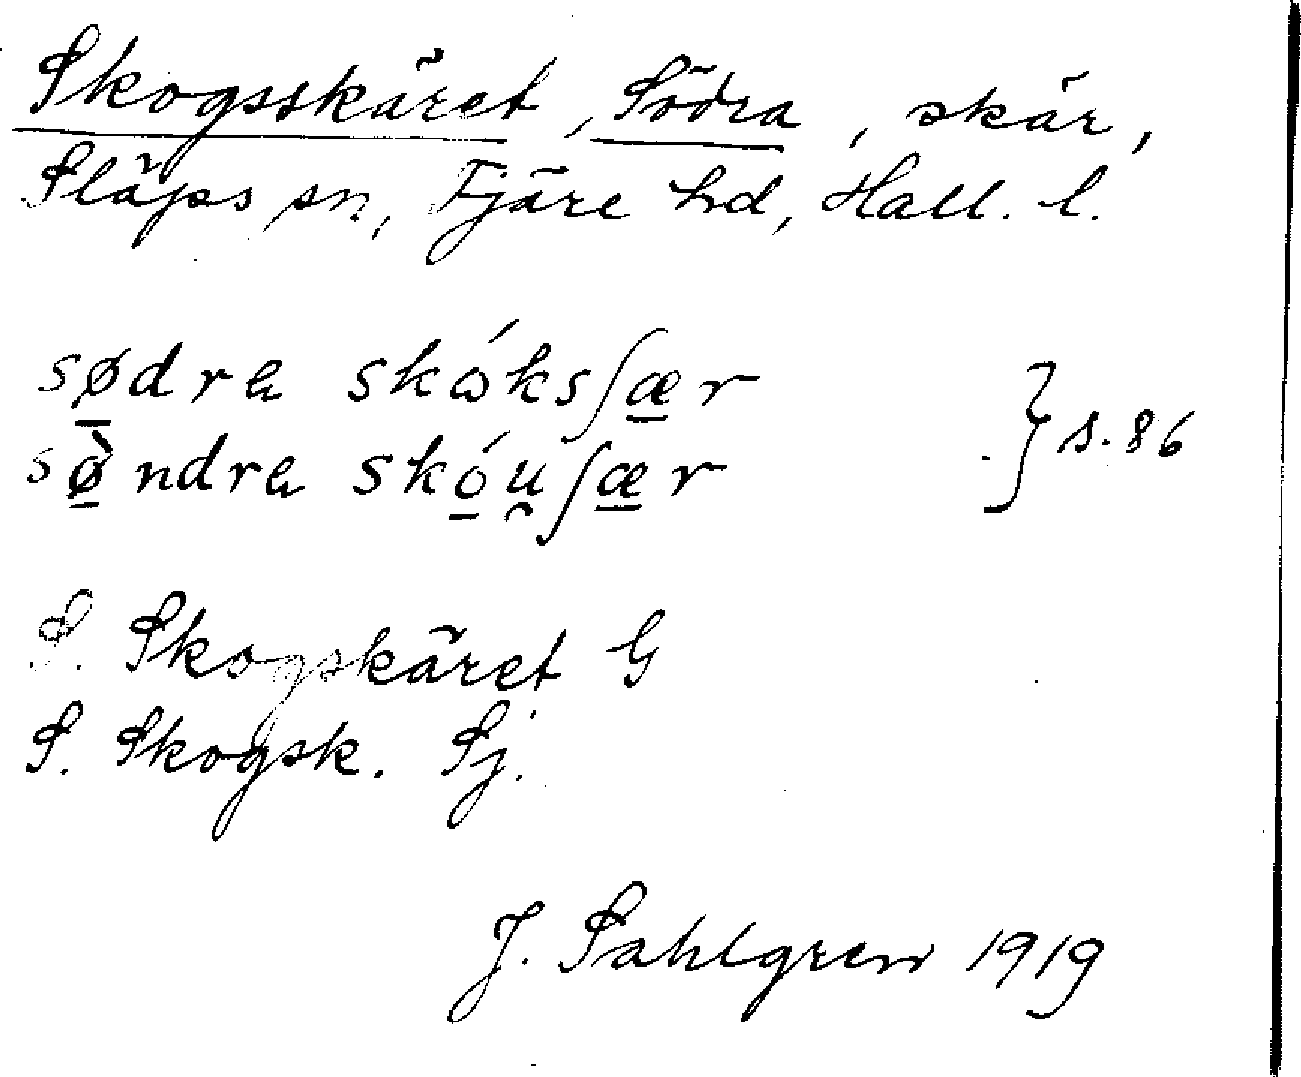 Skogsskäret, Södra, skär,
Släps sn, Fjäre hd, Hall. l.
sø̱dra skóksʃæ̱r } s. 86
sø̱̀ndra skó̱u̯ʃæ̱r
S. Skogskäret G
S. Skogsk. Sj.
J. Sahlgren 1919